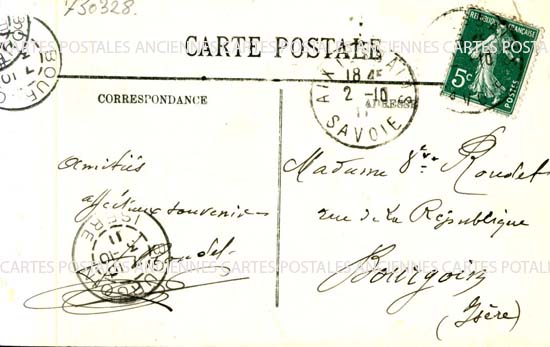 730328.
CARTE POSTALE
CORRESPONDANCE
ADRESSE
AIX
18 45
2 - 10
11
SAVOIE
REPUBLIQUE FRANÇAISE
5c
POSTES
CARTES POSTALES ANCIENNES CARTES POSTALES ANCIENNES CARTES POSTALES
Amitiés
affectueux souvenirs
Roudet
Madame Vve Roudet
rue de la République
Bourgoin
(Isère)
BOURGOIN
ISERE
11
CARTES POSTALES ANCIENNES CARTES POSTALES ANCIENNES CARTES POTALES